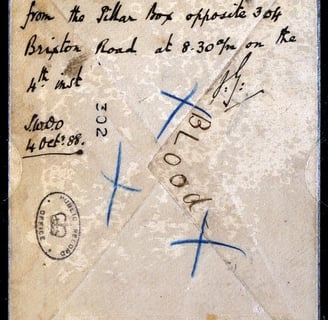 from the Pillar Box opposite 304
Brixton Road at 8.30 a/m on the
4th inst
4 Octr 88.
302
BLOOD
PUBLIC RECORD
OFFICE